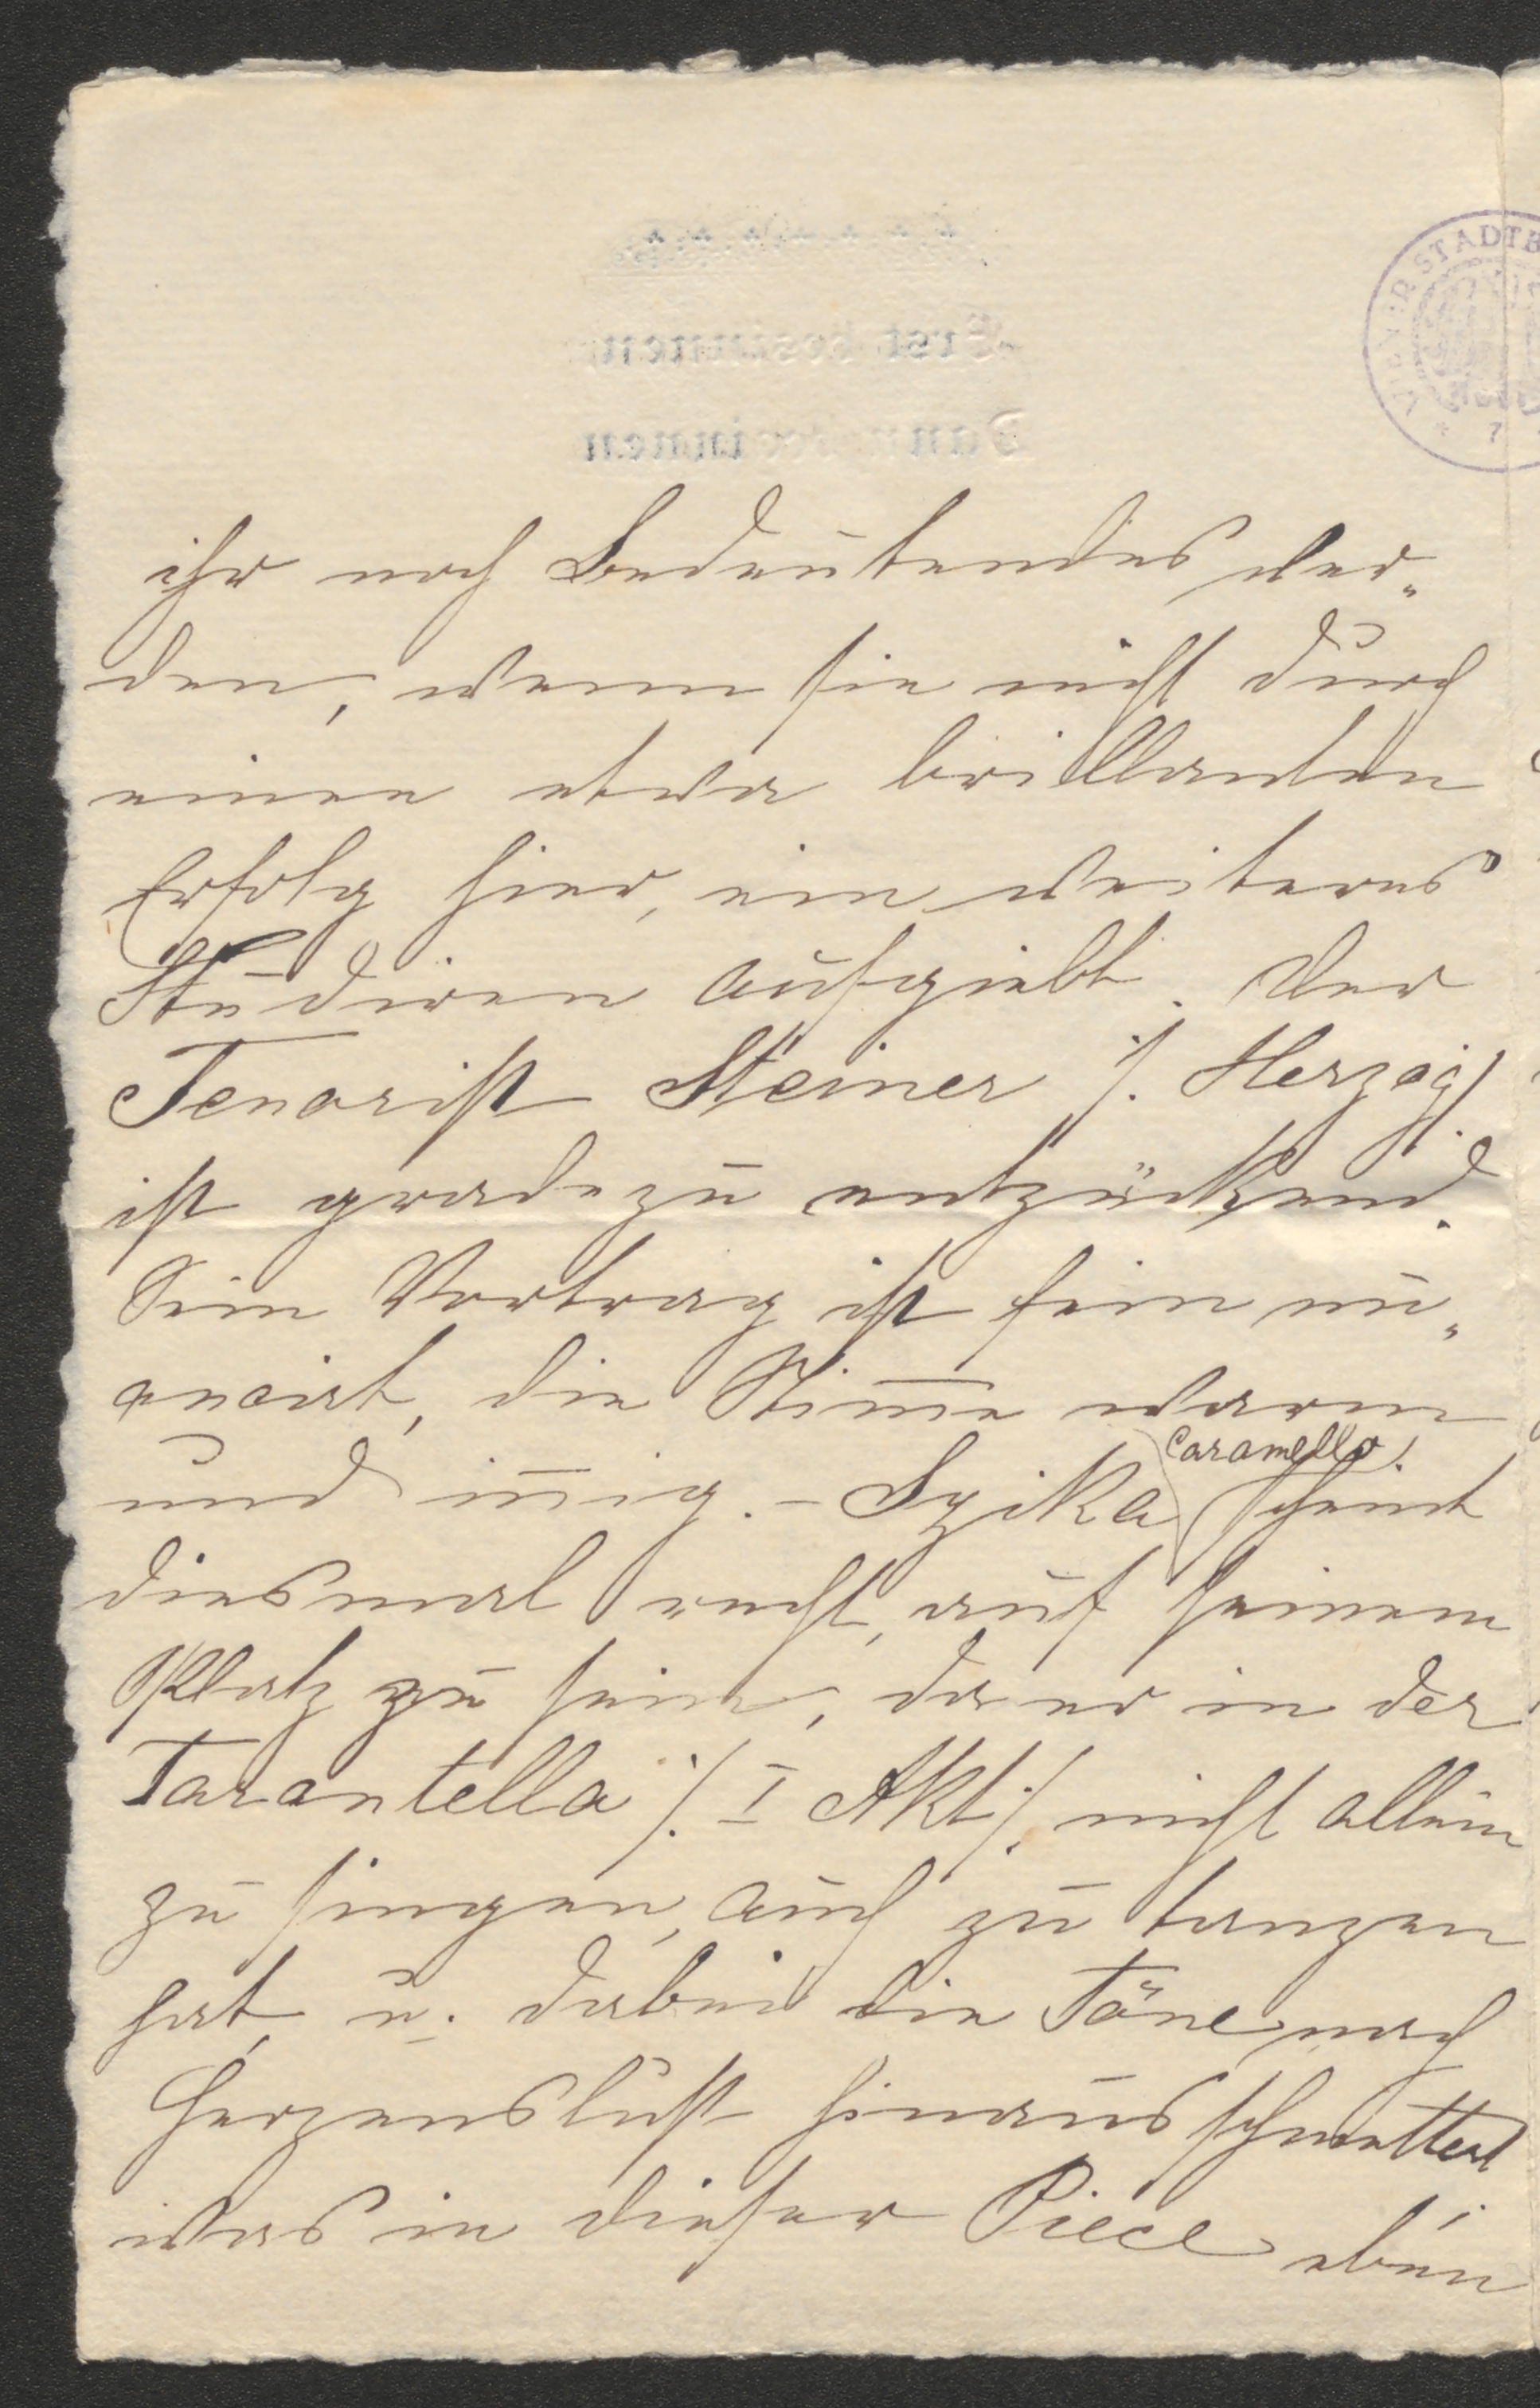 ihr noch Bedeutendes wer„
den, wenn sie nicht durch
einen etwa brillanten
Erfolg hier, ein weiteres
Studiren aufgiebt. Der
Tenorist Steiner /: Herzog :/
ist gradezu entzückend.
Sein Vortrag ist fein nu„
ancirt, die Stim̅e warm
und in̅ig. – Szika (Caramello) scheint
diesmal recht, auf seinem
Platz zu sein, da er in der
Tarantella /: I Akt :/ nicht allein
zu singen, auch zu tanzen
hat, u. dabei die Töne nach
Herzenslust hinausschmettert
was in dieser Piece eben